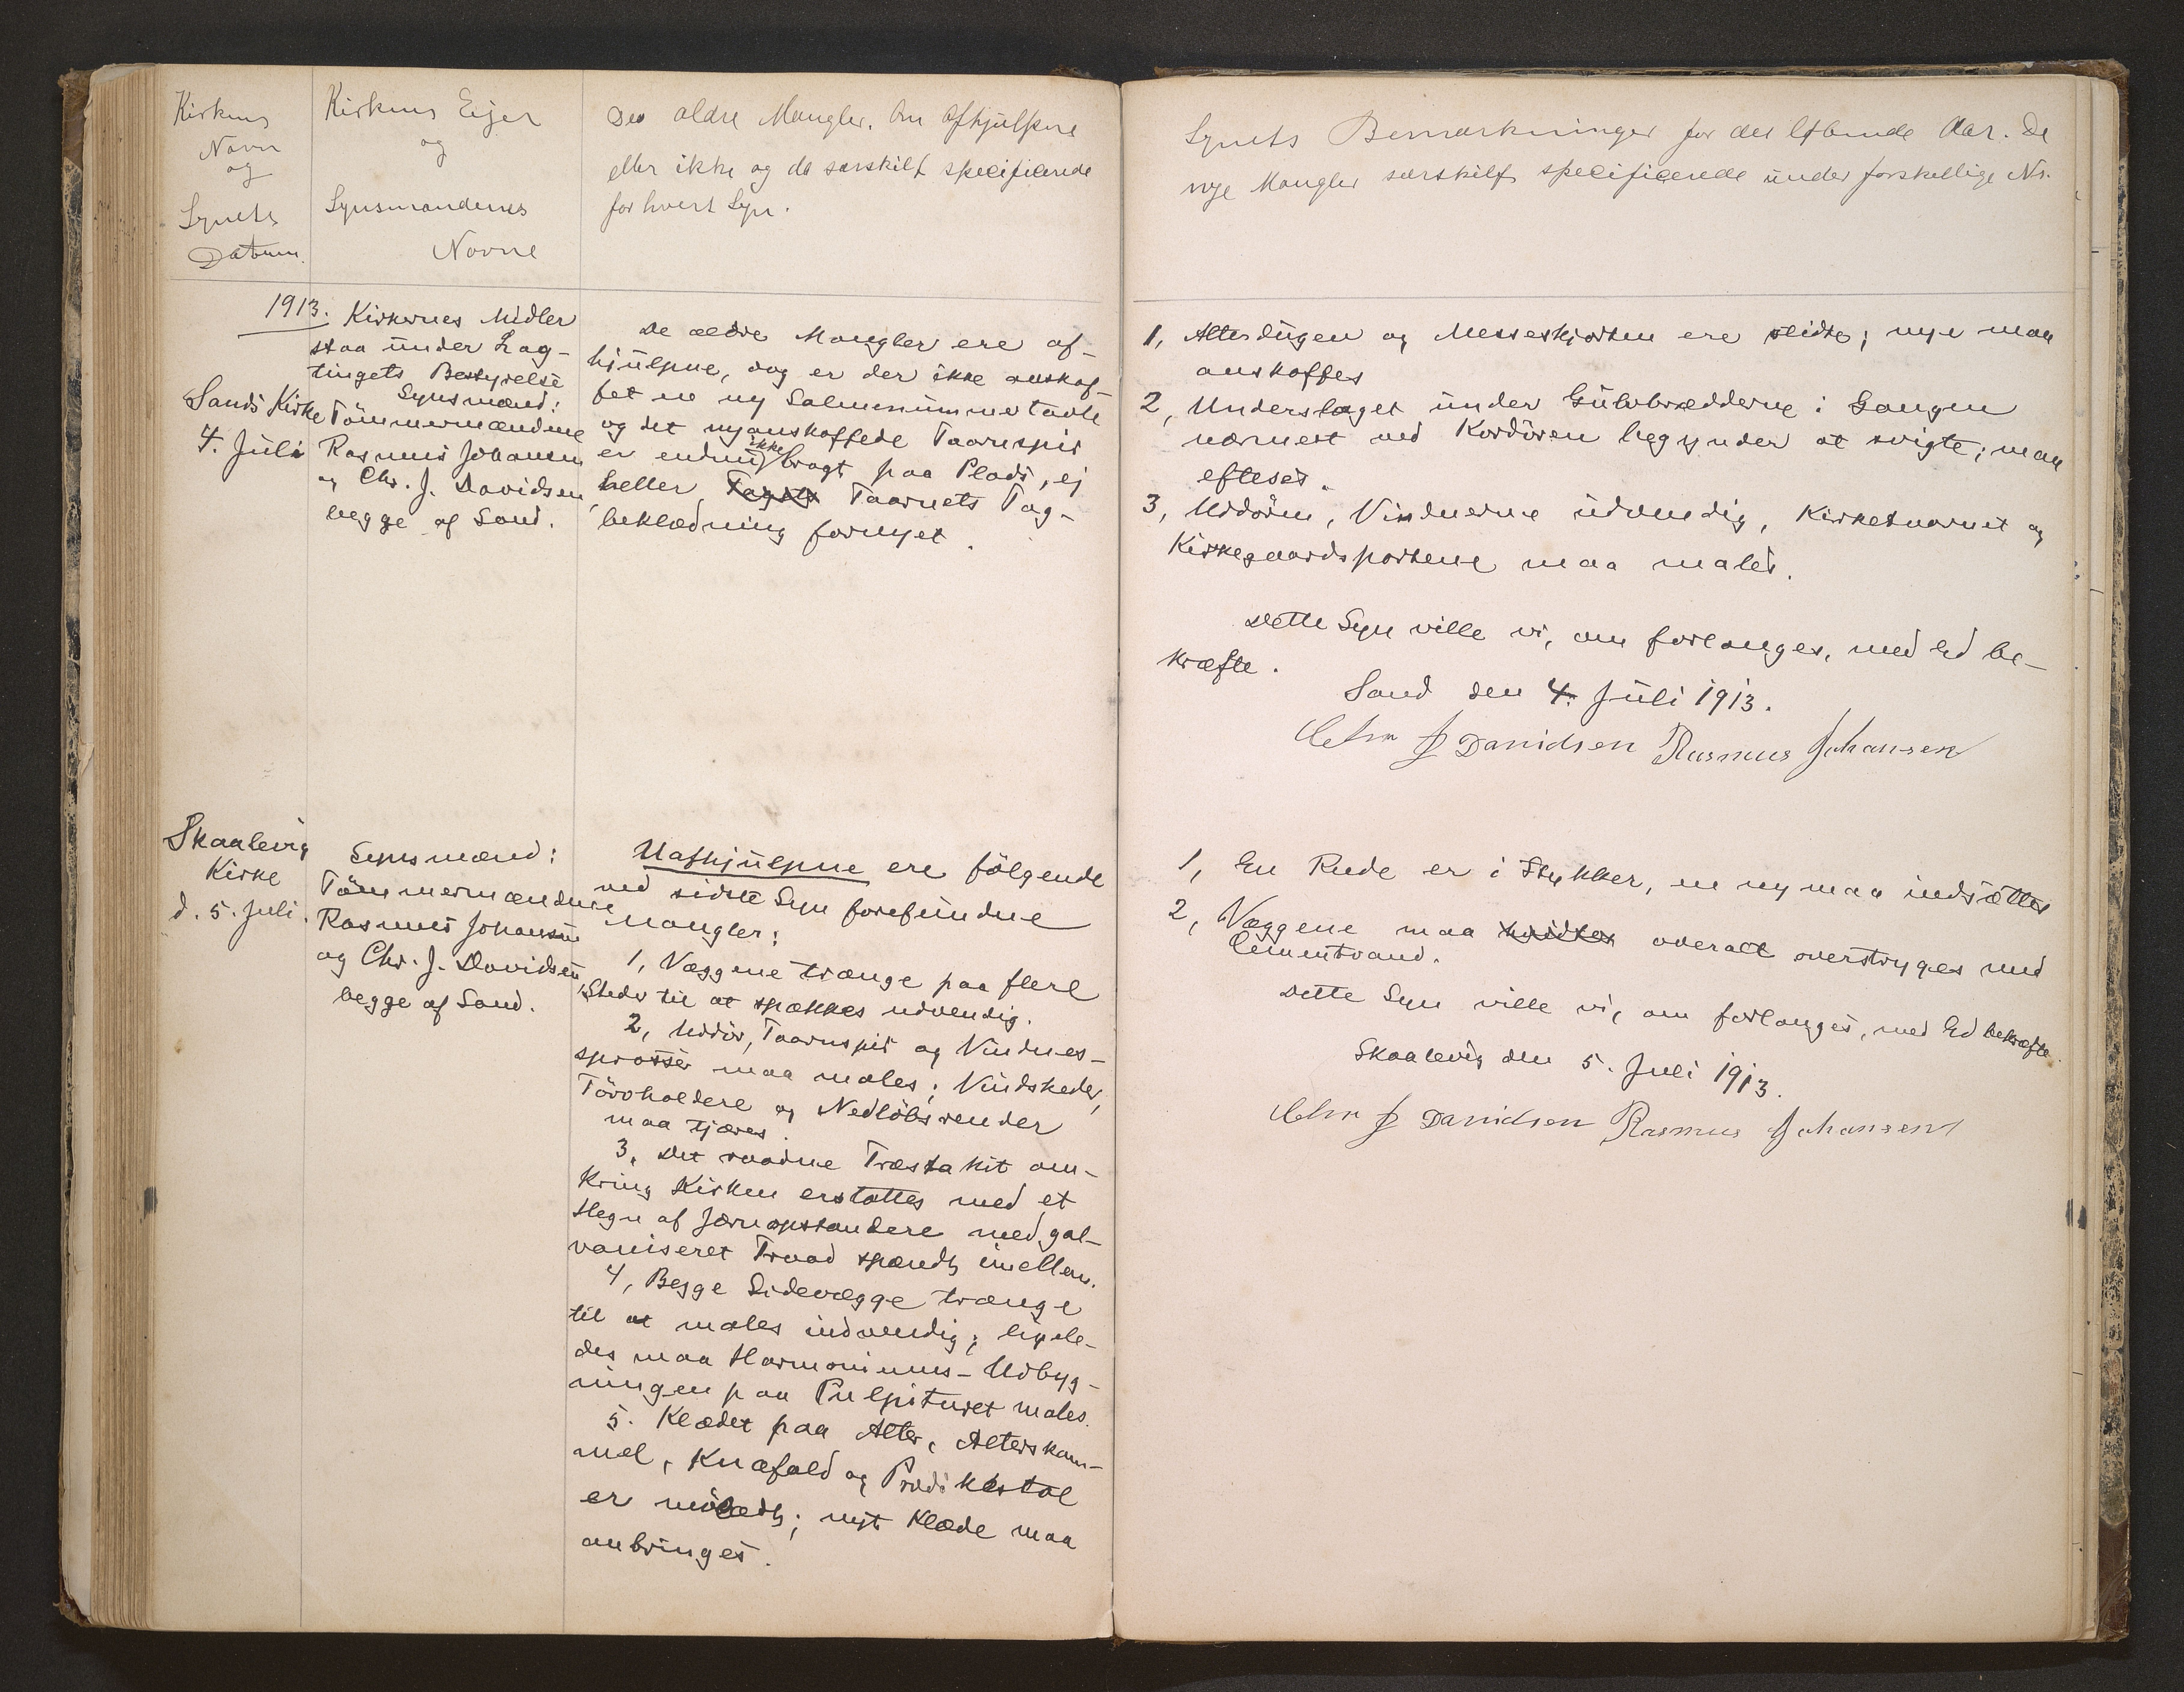 Kirkens
Navn
og
Synets
Datum.
Kirkens Eijer
og
Synsmændenes
Navne
De ældre Mangler, om afhjulpne
eller ikke og da særskilt specificerede
for hvert Syn.
1913.
Sands Kirke
4. Juli
Kirkernes Midler
staa under Lag-
tingets Bestyrelse
Synsmænd:
Tömmermændene
Rasmus Johansen
og Chr. J. Davidsen,
begge af Sand.
De ældre Mangler ere af-
hjulpne, dog er der ikke anskaf-
fet en ny Salmenummertavle
og det nyanskaffede Taarnspir
er endnu ikke bragt paa Plads, ej
heller Tagets Taarnets Tag-
beklædning fornyet.
Skaalevig
Kirke
d. 5. Juli.
Synsmænd:
Tömmermændene
Rasmus Johansen
og Chr. J. Davidsen,
begge af Sand.
Uafhjulpne ere fölgende
ved sidste Syn forefundne
Mangler:
1, Væggene trænge paa flere
Steder til at spækkes udvendig.
2, Uddör, Taarnspir og Vindues-
sprosser maa males; Vindskeder,
Törvholdere og Nedlöbsrender
maa tjæres.
3, Det raadne Træstakit om-
kring Kirken erstattes med et
Hegn af Jærnopstandere med gal-
vaniseret Traad spændt imellem.
4, Begge Sidevægge trænge
til at males indvendig; ligele-
des maa Harmoniums-Udbyg-
ningen paa Pulpituret males.
5. Klædet paa Alter, Alterskam-
mel, Knæfald og Prædikestol
er mölædt; nyt Klæde maa
anbringes.
Synets Bemærkninger for det löbende Aar. De
nye Mangler særskilt specificerede under forskellige No.
1, Alterdugen og Messeskjorten ere slidte; nye maa
anskaffes
2, Underslaget under Gulvbrædderne i Gangen
nærmest ved Kordören begynder at svigte; maa
efteses.
3, Uddören, Vinduerne udvendig, Kirketaarnet og
Kirkegaardsportene maa males.
Dette Syn ville vi, om forlanges, med Ed be-
kræfte.
Sand den 4. Juli 1913.
Chr J Davidsen Rasmus Johansen
1, En Rude er i Stykker, en ny maa indsættes
2, Væggene maa hvidtes overalt overstryges med
Cementvand.
Dette Syn ville vi, om forlanges, med Ed bekræfte.
Skaalevig den 5. Juli 1913.
Chr J Davidsen Rasmus Johansen